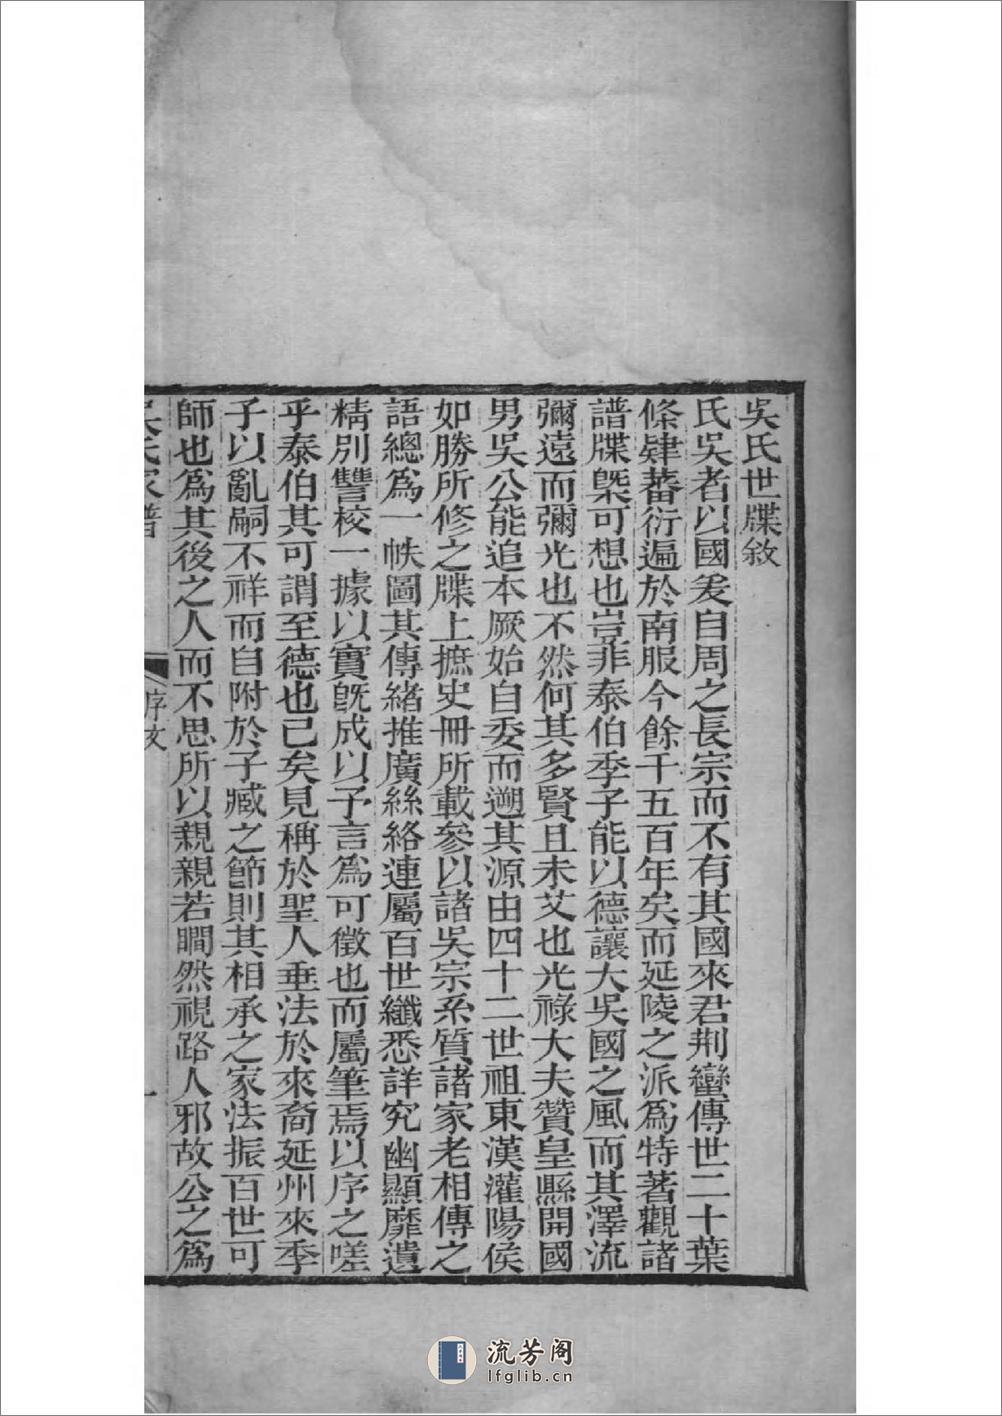 吳氏世牒敘
氏吳者以國爰自周之長宗而不有其國來君荆蠻傳世二十葉
條肄蕃衍遍於南服今餘千五百年矣而延陵之派為特著觀諸
譜牒槩可想也豈非泰伯季子能以德讓大吳國之風而其澤流
彌遠而彌光也不然何其多賢且未艾也光祿大夫贊皇縣開國
男吳公能追本厥始自委而遡其源由四十二世祖東漢灌陽侯
如勝所修之牒上摭史冊所載參以諸吳宗系質諸家老相傳之
語總為一帙圖其傳緒推廣絲絡連屬百世纖悉詳究幽顯靡遺
精別讐校一據以實旣成以予言為可徵也而屬筆焉以序之嗟
乎泰伯其可謂至德也已矣見稱於聖人垂法於來裔延州來季
子以亂嗣不祥而自附於子臧之節則其相承之家法振百世可
師也為其後之人而不思所以親親若瞯然視路人邪故公之為
吳氏家譜
序文
一
流芳阁
lfglib.cn